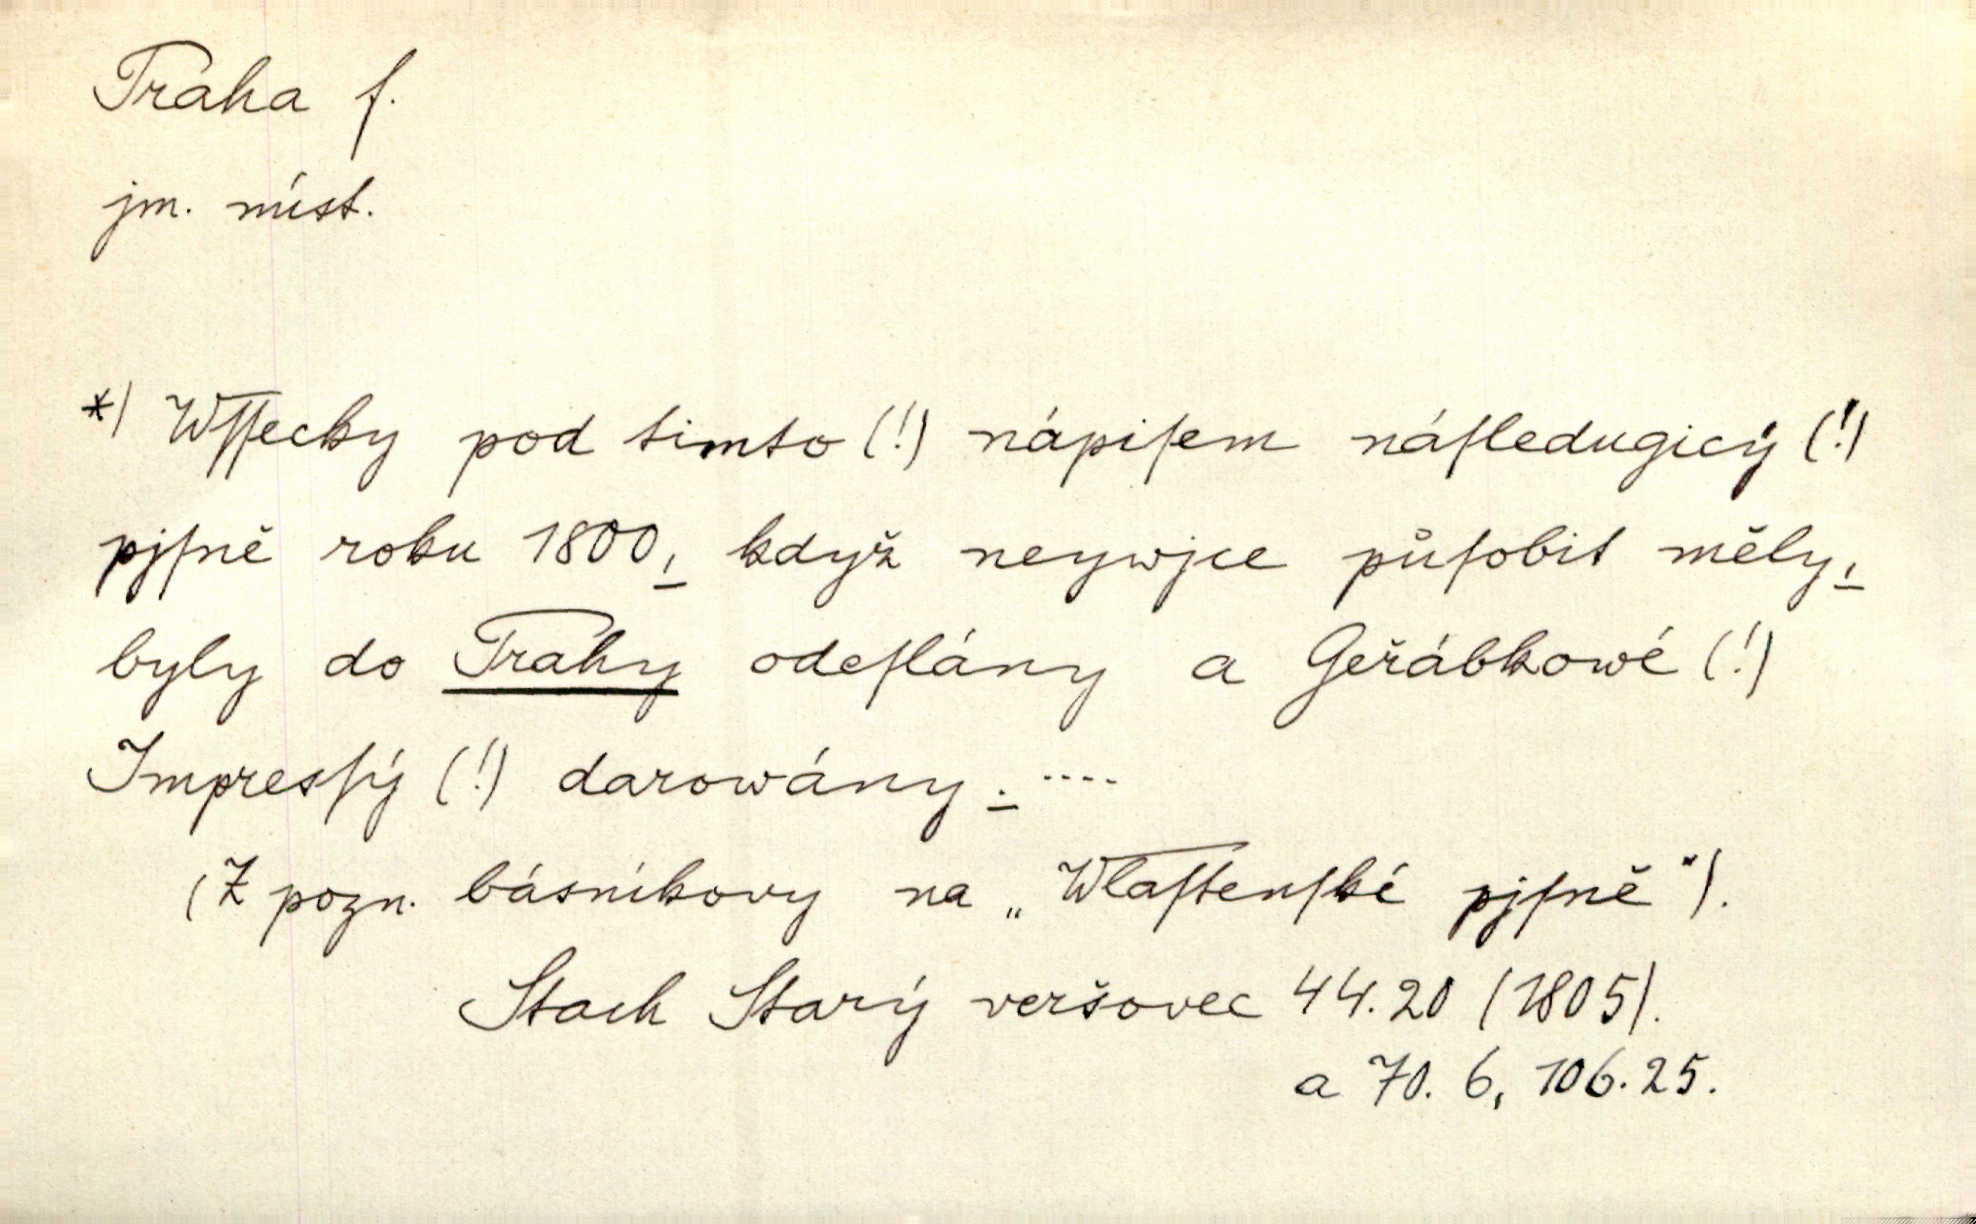 Praha f.
jm. míst.
*) Wſſecky pod timto (!) nápiſem náſledugicý (!)
pjſně roku 1800, když neywjce půſobit měly,
byly do Prahy odeſlány a Geřábkowé (!)
Impresſý (!) darowány. ....
(Z pozn. básníkovy na „Wlaſtenſké pjſně“).
Stach Starý veršovec 44.20 (1805).
a 70. 6, 106.25.